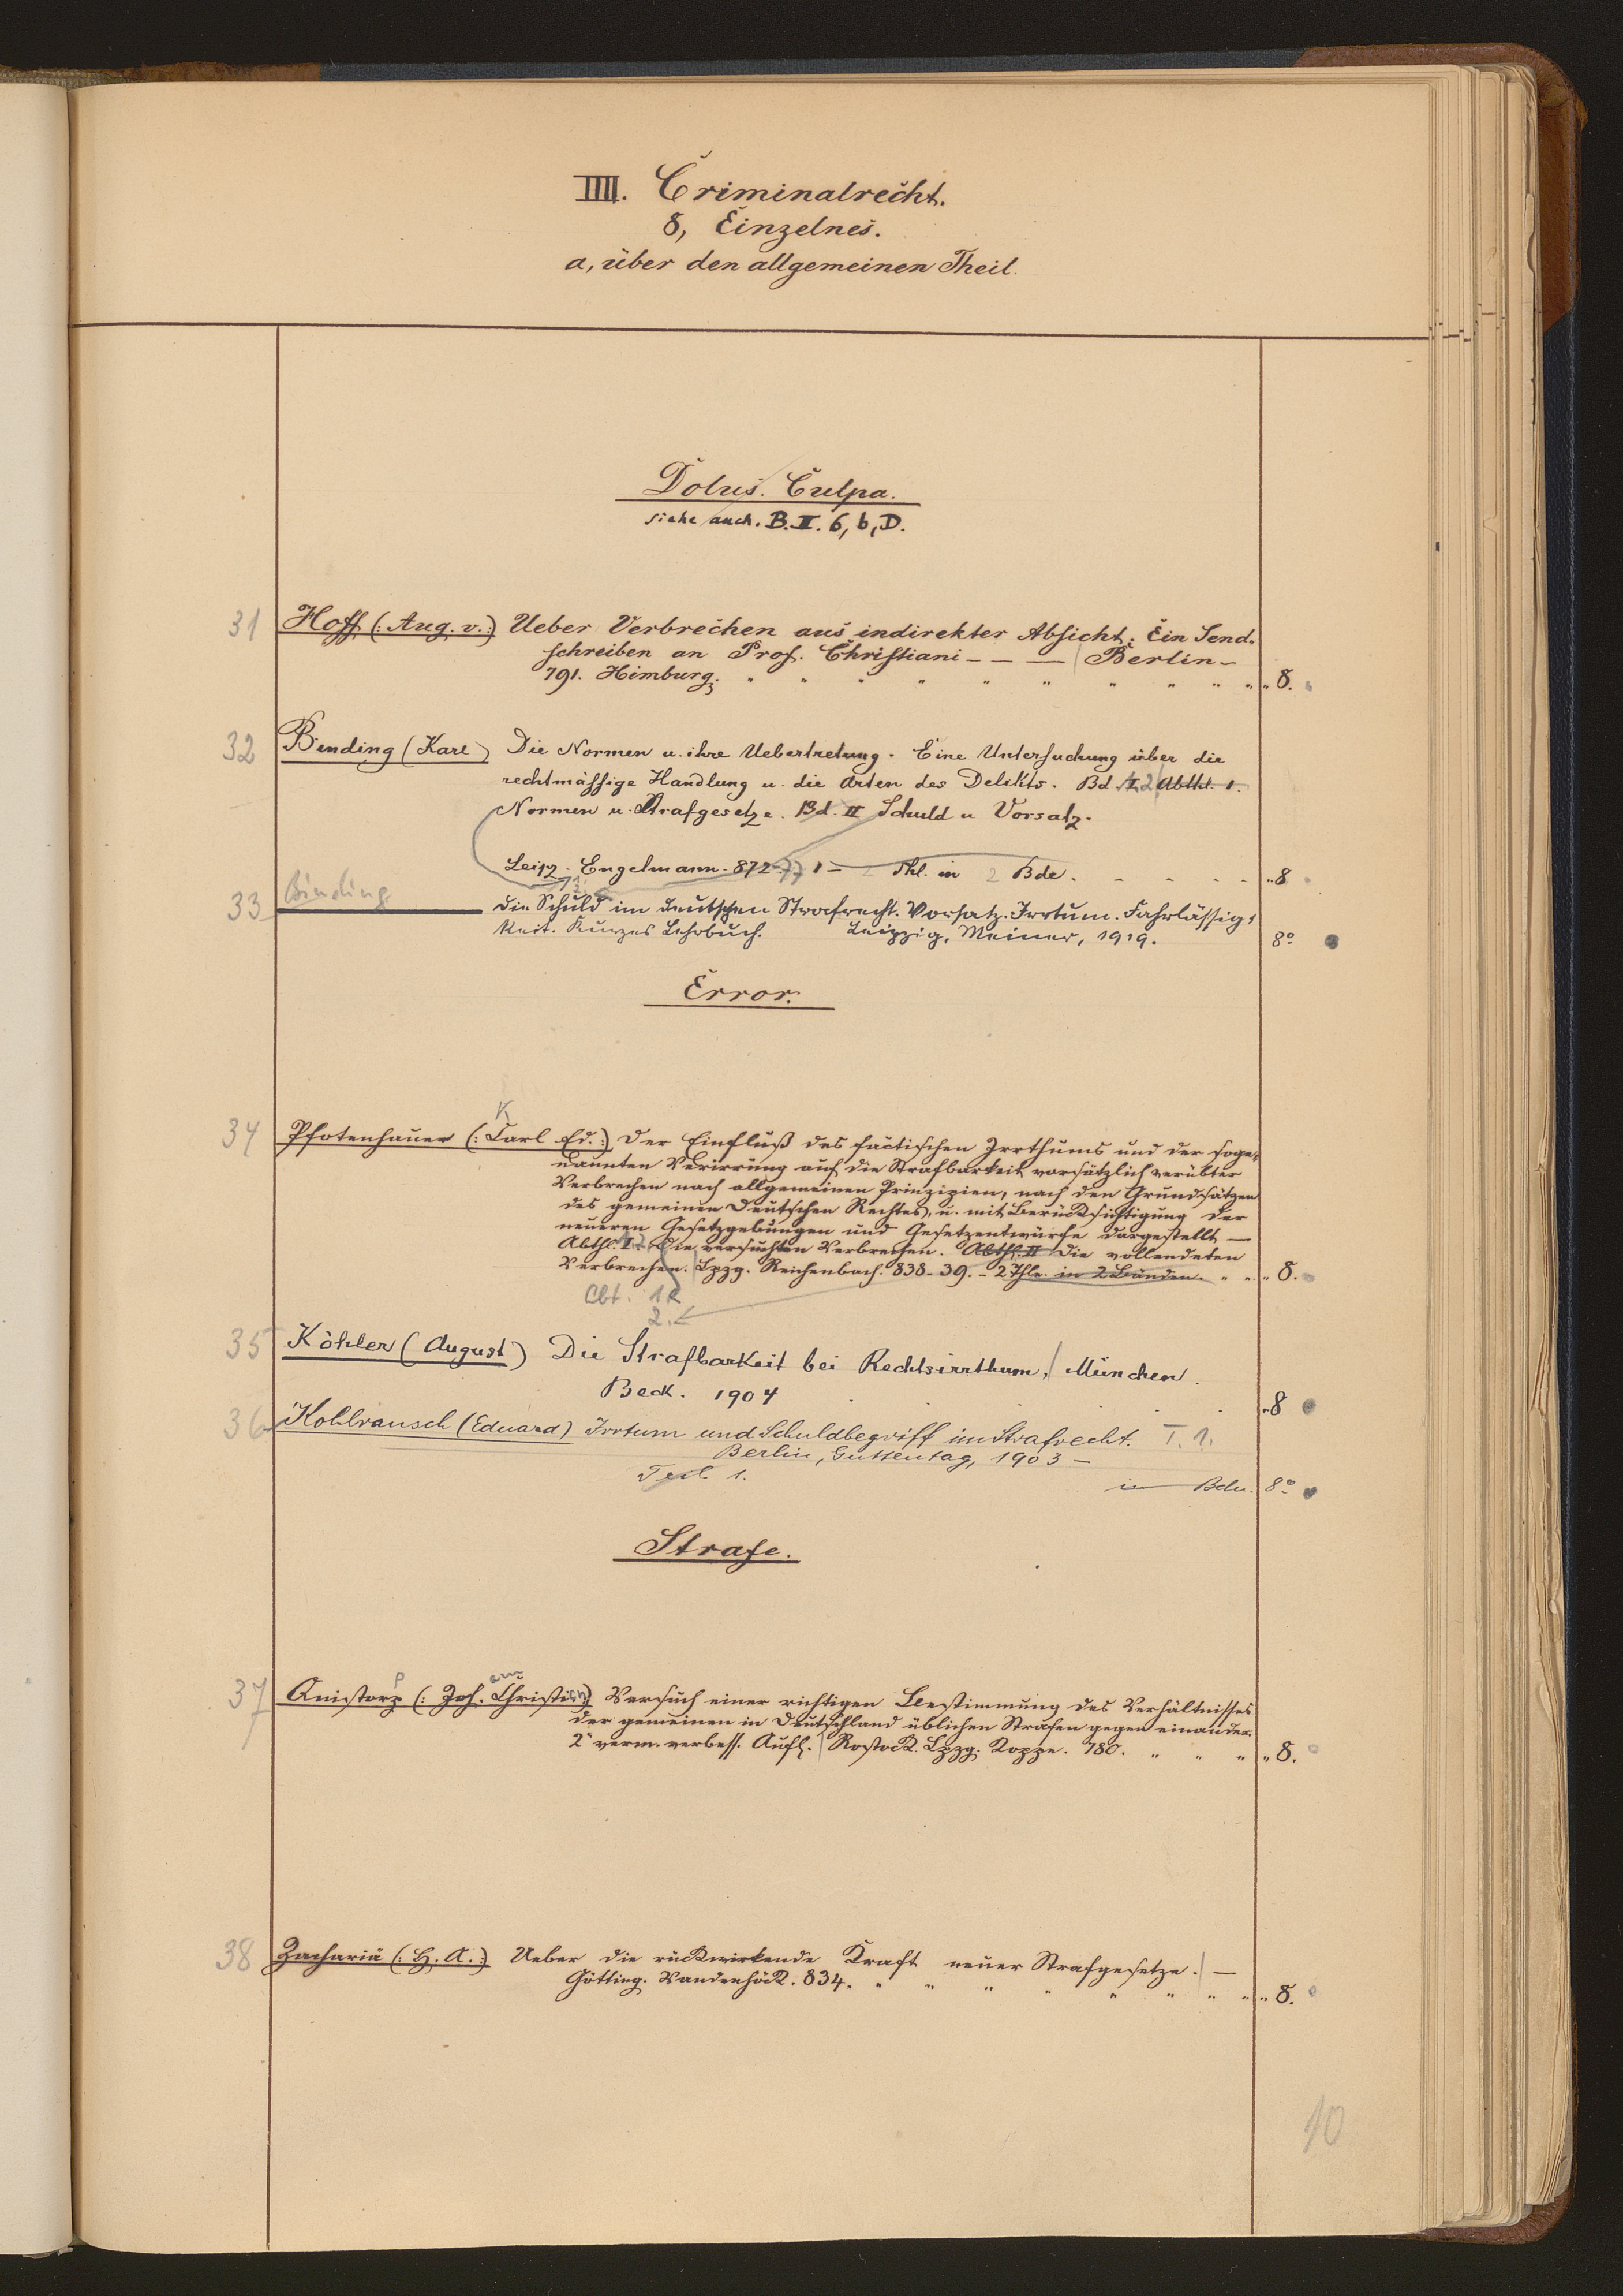 IIII. Criminalrecht.
8, Einzelnes.
a, über den allgemeinen Theil.
Dolus. Culpa.
siehe auch. B. II. 6, b, D.
31 Hoff (: Aug. v. :) Ueber Verbrechen aus indirekter Absicht. Ein Send-
schreiben an Prof. Christiani - - — Berlin -
791. Himburg. " " " " " " " " " " 8.
32 Binding (Karl) Die Normen u. ihre Uebertretung. Eine Untersuchung über die
rechtmässige Handlung u. die Arten des Delikts. Bd I 2 Abthl. 1.
Normen u. Strafgesetze. Bd. II Schuld u Vorsatz.
Leipz. Engelmann. 872-77 1 - 2 Thl. in 2 Bde. - - - - - " 8
33 Binding
Die Schuld im deutschen Strafrecht. Vorsatz. Irrtum. Fahrlässig-
keit. Kurzes Lehrbuch. Leipzig, Meiner, 1919. 8º
Error.
K
34 Pfotenhauer (: Carl Ed. :) Der Einfluß des factischen Irrthums und der soge-
nannten Verirrung auf die Strafbarkeit vorsätzlich verübter
Verbrechen nach allgemeinen Prinzipien, nach den Grundsätzen
des gemeinen Deutschen Rechtes, u. mit Berücksichtigung der
neueren Gesetzgebungen und Gesetzentwürfe dargestellt —
Abthl. I. Die versuchten Verbrechen. Abthl. II Die vollendeten
Verbrechen. Lpzg. Reichenbach. 838-39. - 2 Thle. in 2 Bänden. " " " 8.
Abt. 1
2.
35 Köhler (August) Die Strafbarkeit bei Rechtsirrthum, München.
Beck. 1904 . . . . " 8
36 Kohlrausch (Eduard) Irrtum und Schuldbegriff im Strafrecht. T. 1.
Berlin, Guttentag, 1903 -
Teil 1. in Bdn. 8º
Strafe.
37 Quistorp (: Joh. Christian) Versuch einer richtigen Bestimmung des Verhältnisses
der gemeinen in Deutschland üblichen Strafen gegen einander.
2e verm. verbess. Aufl. Rostock. Lpzg. Koppe. 780. " " " " 8.
38 Zachariä (: H. A. :) Ueber die rückwirkende Kraft neuer Strafgesetze. —
Götting. Vandenhöck. 834. " " " " " " " " " 8.
10